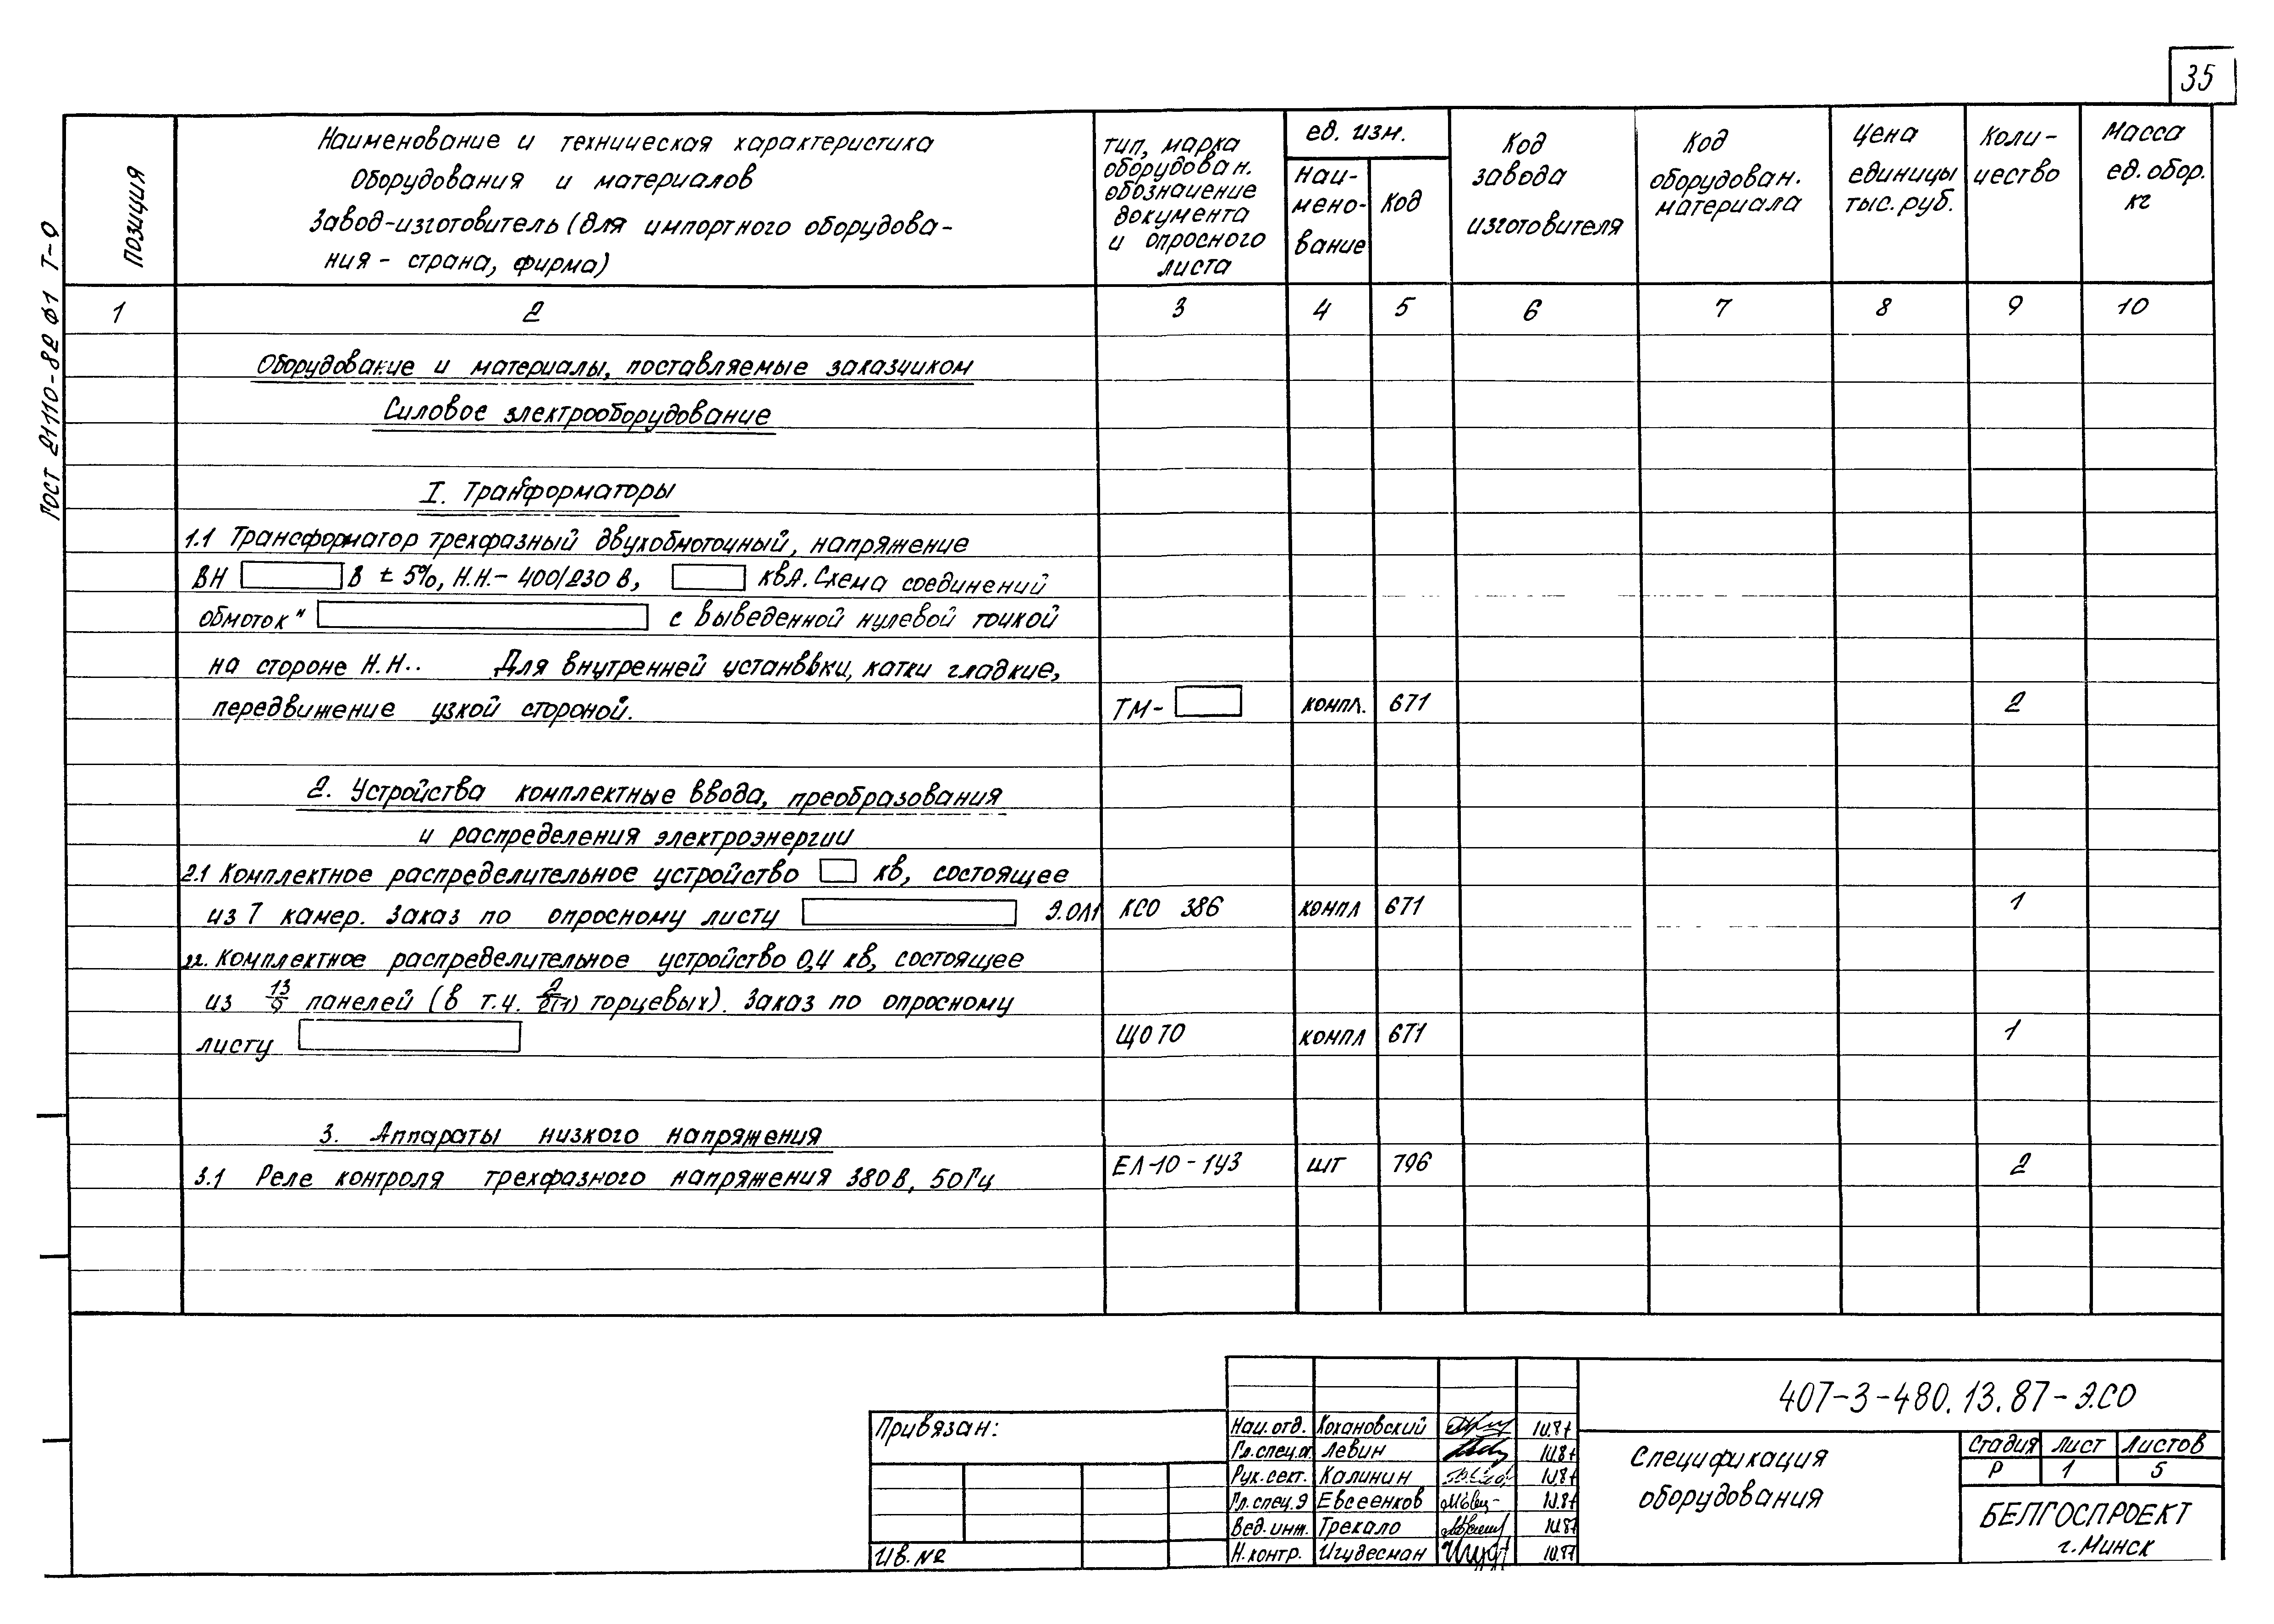 35
ГОСТ 21110-82 Ф1 Т-9
Позиция
Наименование и техническая характеристика
Оборудования и материалов
Завод-изготовитель (для импортного оборудова-
ния - страна, фирма)
тип, марка
оборудован.
обозначение
документа
и опросного
листа
ед. изм.
Наи-
мено-
вание
Код
Код
завода
изготовителя
Код
оборудован.
материала
Цена
единицы
тыс. руб.
Коли-
чество
Масса
ед. обор.
кг
1 2 3 4 5 6 7 8 9 10
Оборудование и материалы, поставляемые заказчиком
Силовое электрооборудование
I. Трансформаторы
1.1 Трансформатор трехфазный двухобмоточный, напряжение
ВН В ± 5%, Н.Н.- 400/230 В, кВА. Схема соединений
обмоток " с выведенной нулевой точкой
на стороне Н.Н.. Для внутренней установки, катки гладкие,
передвижение узкой стороной. ТМ- компл. 671 2
2. Устройства комплектные ввода, преобразования
и распределения электроэнергии
2.1 Комплектное распределительное устройство кв, состоящее
из 7 камер. Заказ по опросному листу Э.ОЛ1 КСО 386 компл 671 1
22. Комплектное распределительное устройство 0,4 кв, состоящее
из 13/9 панелей (в т.ч. 2/2(1) торцевых). Заказ по опросному
листу ЩО 70 компл 671 1
3. Аппараты низкого напряжения
3.1 Реле контроля трехфазного напряжения 380 В, 50 Гц ЕЛ-10-1У3 шт 796 2
407-3-480.13.87-Э.СО
Привязан:
Ив. №
Нач. отд. Кохановский IV.87
Гл. спец. Левин IV.87
Рук. сект. Калинин IV.87
Гл. спец. Э Евсеенков IV.87
Вед. инж. Трекало IV.87
Н. контр. Игудесман IV.87
Спецификация
оборудования
Стадия Лист Листов
Р 1 5
БЕЛГОСПРОЕКТ
г. Минск